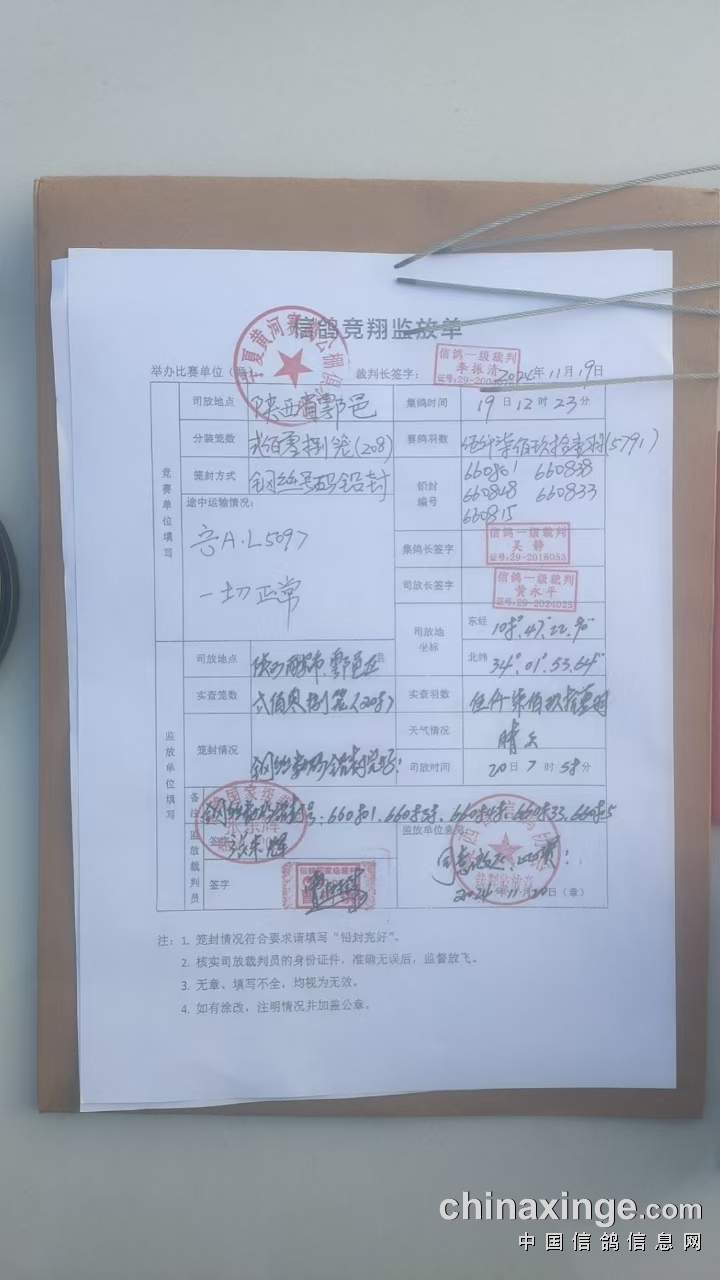 信鸽竞翔监放单
举办比赛单位
裁判长签字:
信鸽一级裁判
李振清
2024年11月19日
司放地点
陕西省鄠邑
集鸽时间
19日12时23分
分装笼数
贰佰零捌笼(208)
赛鸽羽数
伍仟柒佰玖拾壹羽(5791)
笼封方式
钢丝号码铅封
铅封编号
660801 660838
660848 660833
660815
途中运输情况:
一切正常
集鸽长签字
信鸽一级裁判
吴静
证号:29-2018053
司放长签字
信鸽一级裁判
黄永平
证号:29-2024025
司放地坐标
东经
北纬
34°.01'.53.64"
竞赛单位填写
司放地点
实查笼数
实查羽数
伍仟柒佰玖拾壹羽
笼封情况
天气情况
晴天
司放时间
20日7时58分
监放单位填写
备注
监放裁判员
签字
签字
监放单位意见
2024年11月20日(章)
注: 1. 笼封情况符合要求请填写“铅封完好”。
2. 核实司放裁判员的身份证件,准确无误后,监督放飞。
3. 无章、填写不全,均视为无效。
4. 如有涂改,注明情况并加盖公章。
chinaxinge.com
中国信鸽信息网